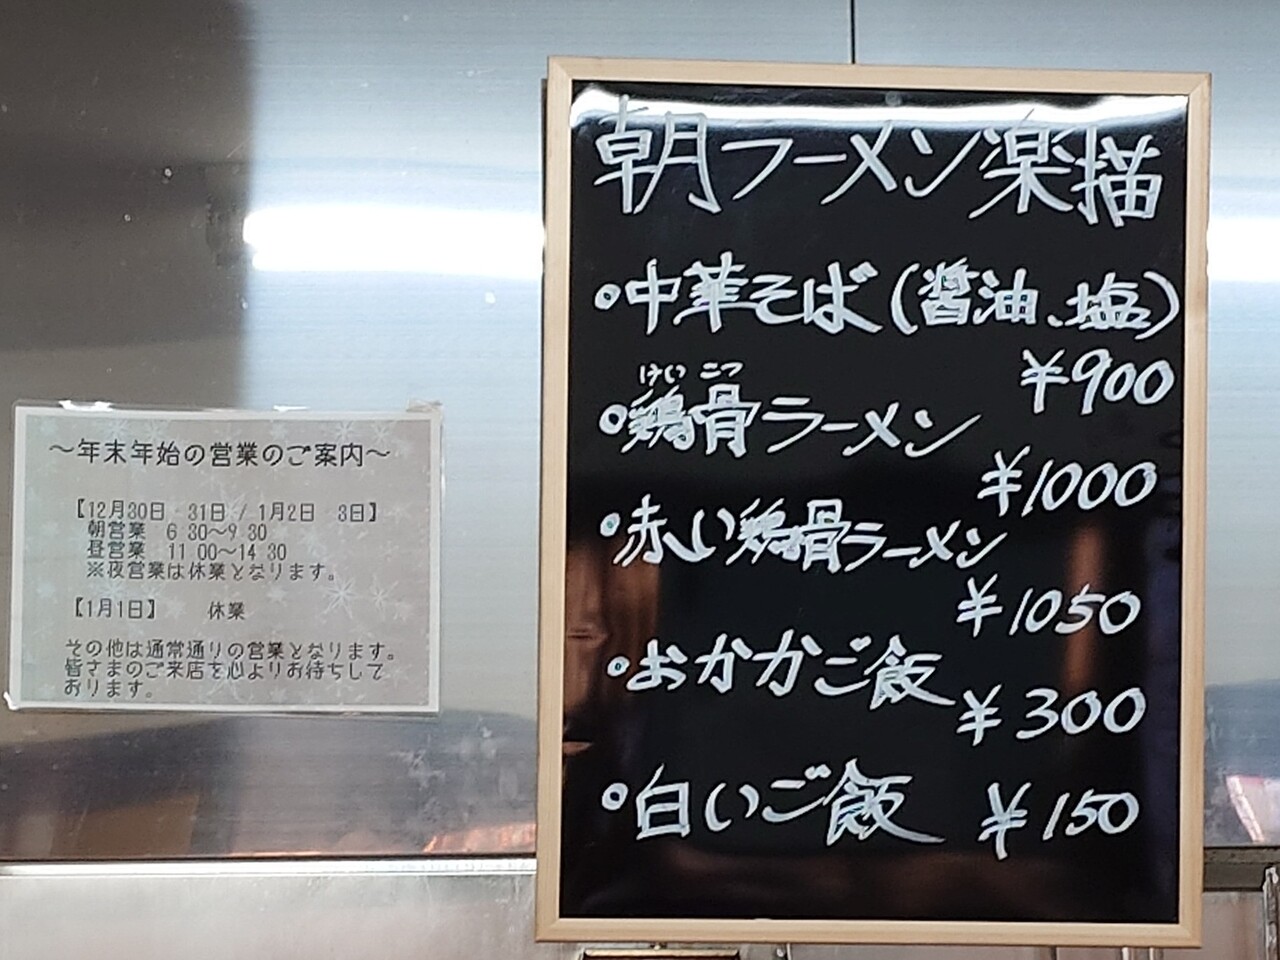 朝ラーメン楽描
・中華そば(醤油、塩)
¥900
けいこつ
・鶏骨ラーメン
¥1000
・赤い鶏骨ラーメン
¥1050
・おかかご飯
¥300
・白いご飯 ¥150
～年末年始の営業のご案内～
【12月30日 31日 / 1月2日 3日】
朝営業 6 30～9 30
昼営業 11 00～14 30
※夜営業は休業となります。
【1月1日】 休業
その他は通常通りの営業となります。
皆さまのご来店を心よりお待ちして
おります。